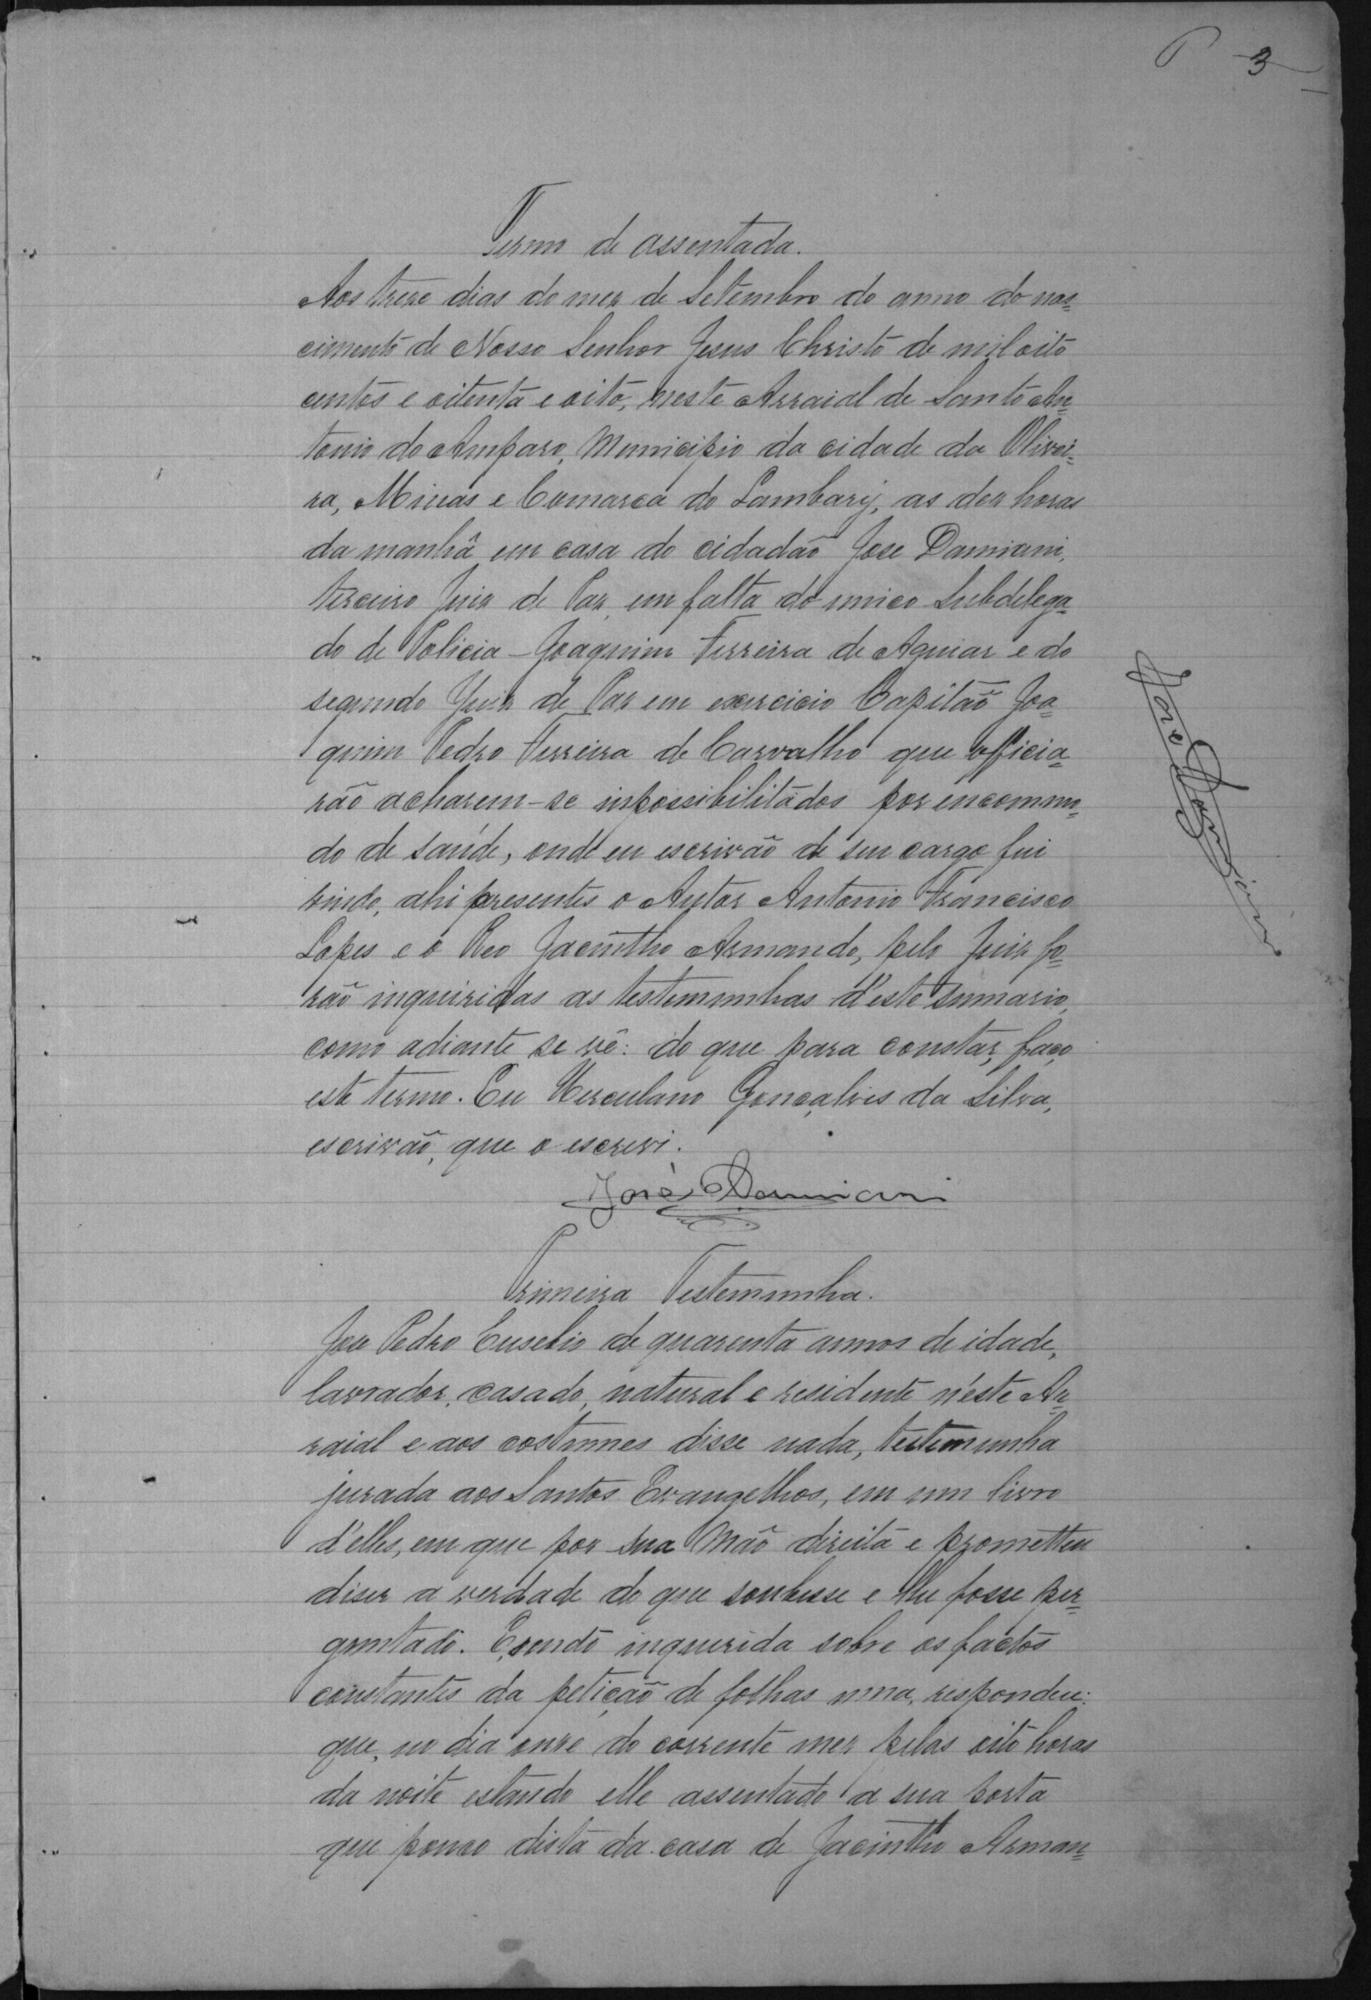 3
Termo de assentada.
Aos treze dias do mez de Setembro do anno do nas=
cimento de Nosso Senhor Jesus Christo de mil oito
centos e oitenta e oito, neste Arraial de Santo An=
tonio do Amparo, Municipio da cidade da Olivei=
ra, Minas e Comarca do Lambary, as dez horas
da manhã em casa do cidadão Jose Damiani,
terceiro Juiz de Paz, em falta do unico Subdelega=
do de Policia - Joaquim Ferreira de Aguiar e do
segundo Juiz de Paz em exercicio Capitão Joa=
quim Pedro Ferreira de Carvalho que officia=
rão acharem-se impossibilitados por encommo=
do de saúde, onde eu escrivão de seu cargo fui
vindo, ahi presentes o Autor Antonio Francisco
Lopes e o Reo Jacintho Armando, pelo Juiz fo=
rão inqueiridas as testemunhas d'este summario,
como adiante se vê: do que para constar, faço
este termo. Eu Herculano Gonçalves da Silva,
escrivão, que o escrevi.
José Damiani
Primeira Testemunha.
Pedro Eusebio de quarenta annos de idade,
lavrador, casado, natural e residente n'este Ar=
raial e aos costumes disse nada, testemunha
jurada aos Santos Evangelhos, em um livro
d'elles, em que poz sua mão direita e prometteu
diser a verdade do que soubesse e lhe fosse per=
guntado. E, sendo inquerida sobre os factos
constantes da petição de folhas uma, respondeu:
que, no dia onze do corrente mez pelas oito horas
da noite estando elle assentado a sua porta
que pouco dista da casa de Jacintho Arman=